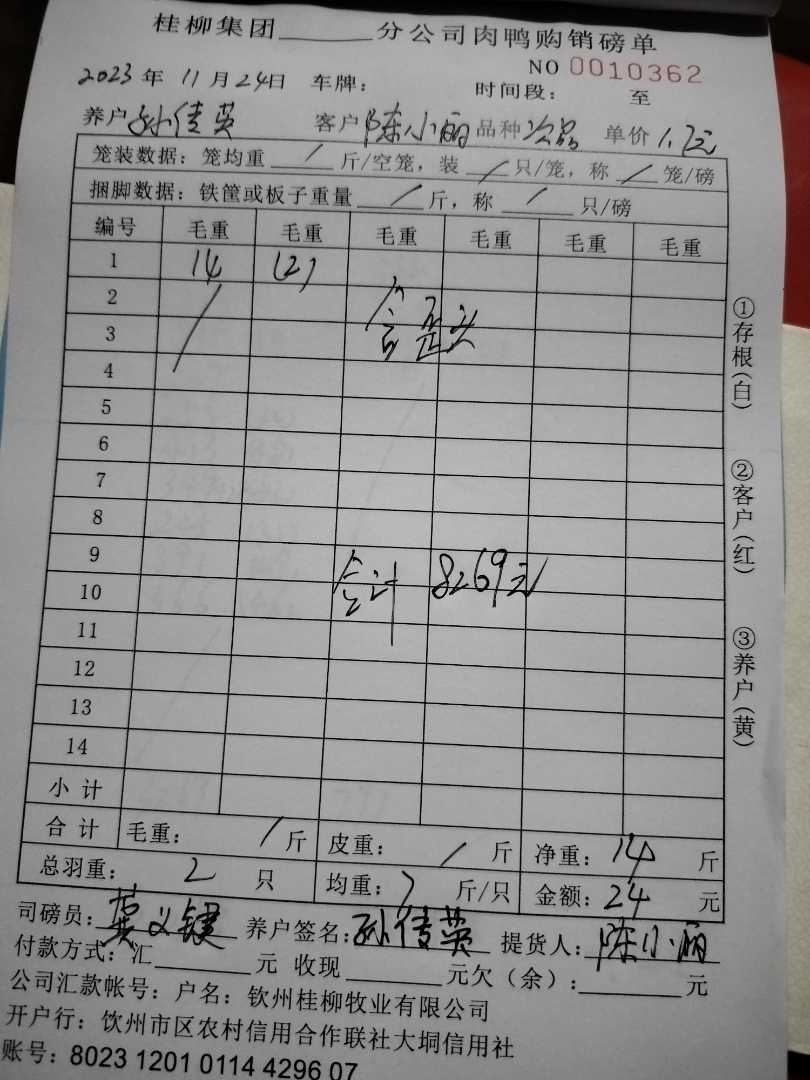 桂柳集团______分公司肉鸭购销磅单
NO 0010362
2023年 11月24日 车牌: 时间段: 至
养户 孙传英 客户 陈小丽 品种 次品 单价 1.7元
笼装数据: 笼均重 / 斤/空笼, 装 / 只/笼, 称 / 笼/磅
捆脚数据: 铁筐或板子重量 / 斤, 称 / 只/磅
编号 毛重 毛重 毛重 毛重 毛重 毛重
1 14 (2)
2 /
3 含歪头
4
5
6
7
8
9
10 合计 8269元
11
12
13
14
小计
合计 毛重: / 斤 皮重: / 斤 净重: 14 斤
总羽重: 2 只 均重: 7 斤/只 金额: 24 元
司磅员: 莫义键 养户签名: 孙传英 提货人: 陈小丽
付款方式: 汇______元 收现______元欠(余):______元
公司汇款帐号: 户名: 钦州桂柳牧业有限公司
开户行: 饮州市区农村信用合作联社大垌信用社
账号: 8023 1201 0114 4296 07
①存根(白)
②客户(红)
③养户(黄)